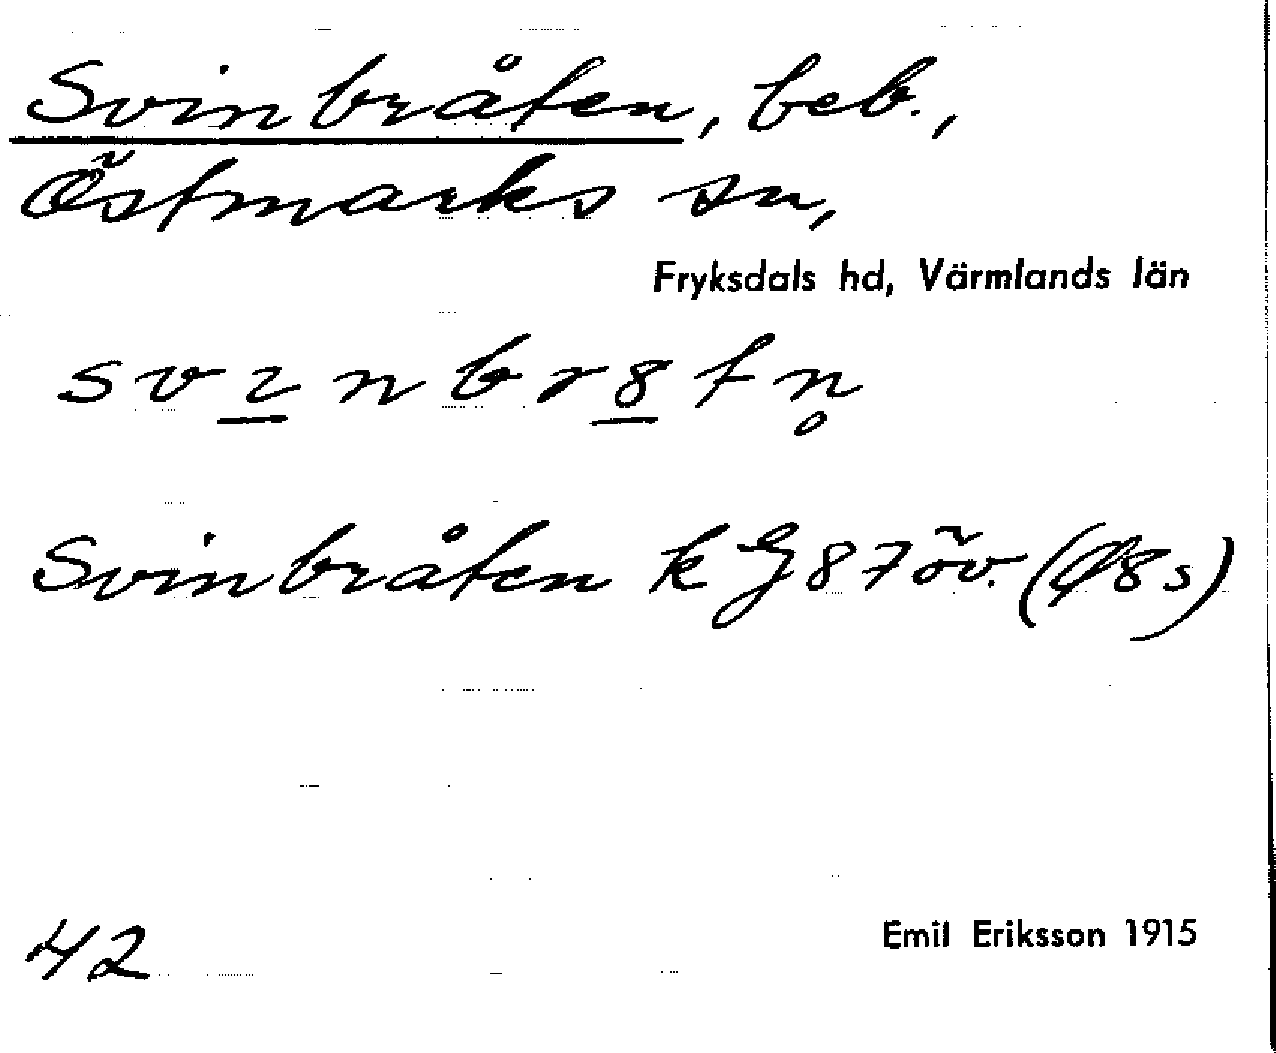 Svinbråten, beb.,
Östmarks sn,
Fryksdals hd, Värmlands län
svınbr8tn̥
Svinbråten k G87 öv. (Ø8s)
42
Emil Eriksson 1915